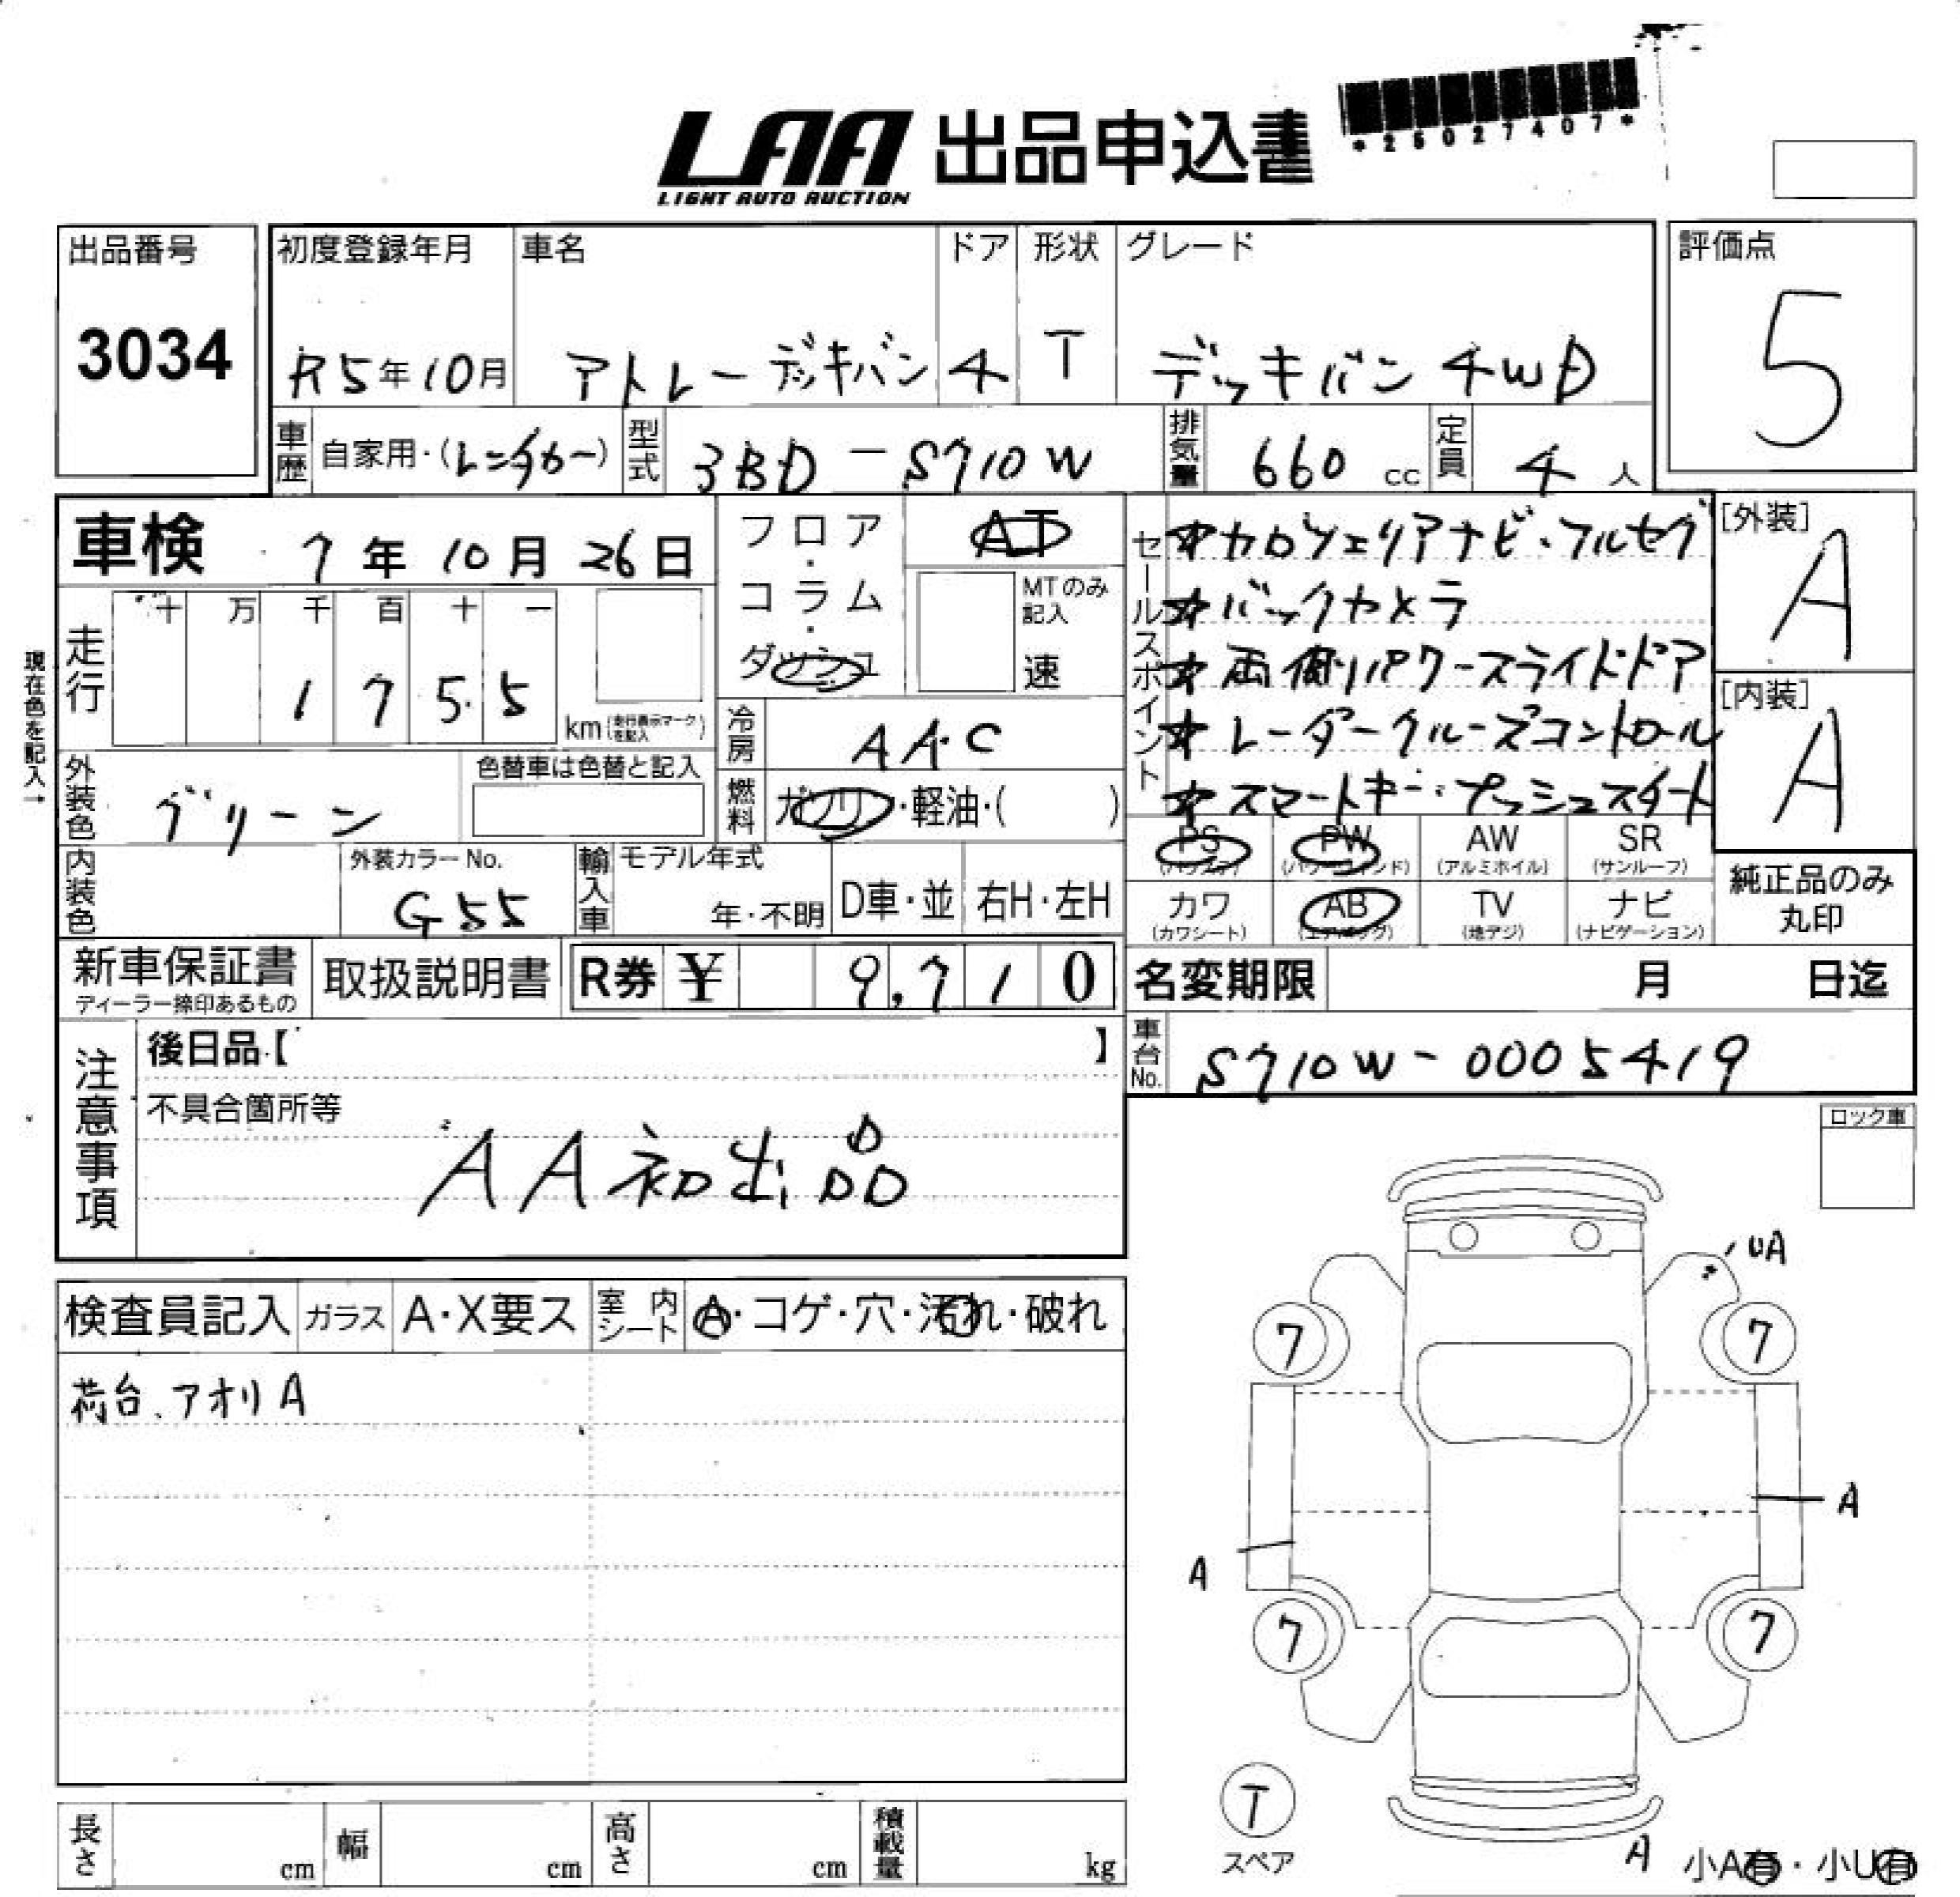 LAA 出品申込書
LIGHT AUTO AUCTION
*25027407*
出品番号
3034
初度登録年月
R5年10月
車名
アトレーデッキバン
ドア
4
形状
T
グレード
デッキバン 4WD
評価点
5
車歴 自家用・(レンタカー)
型式 3BD-S710W
排気量 660 cc
定員 4 人
車検 7年10月26日
フロア・コラム・ダッシュ
AT
MTのみ記入
速
セールスポイント
☆カロツェリアナビ・フルセグ
☆バックカメラ
☆両側パワースライドドア
☆レーダークルーズコントロール
☆スマートキー・プッシュスタート
[外装]
A
[内装]
A
現在色を記入→
走行
十 万 千 百 十 一
1 7 5 5
km(走行表示マークを記入)
冷房 AAC
外装色 グリーン
色替車は色替と記入
燃料 ガソリン・軽油・( )
PS (パワステ)
PW (パワーウインド)
AW (アルミホイル)
SR (サンルーフ)
カワ (カワシート)
AB (エアバッグ)
TV (地デジ)
ナビ (ナビゲーション)
純正品のみ丸印
内装色
外装カラーNo.
G55
輸入車
モデル年式
年・不明
D車・並
右H・左H
新車保証書
ディーラー捺印あるもの
取扱説明書
R券 ¥ 9,710
名変期限 月 日迄
車台No. S710W-0005419
注意事項
後日品【 】
不具合箇所等
AA初出品
ロック車
検査員記入
ガラス A・X要ス
室内シート A・コゲ・穴・汚れ・破れ
荷台、アオリA
UA
7
7
A
A
7
7
T
スペア
A
小A有・小U有
長さ cm
幅 cm
高さ cm
積載量 kg